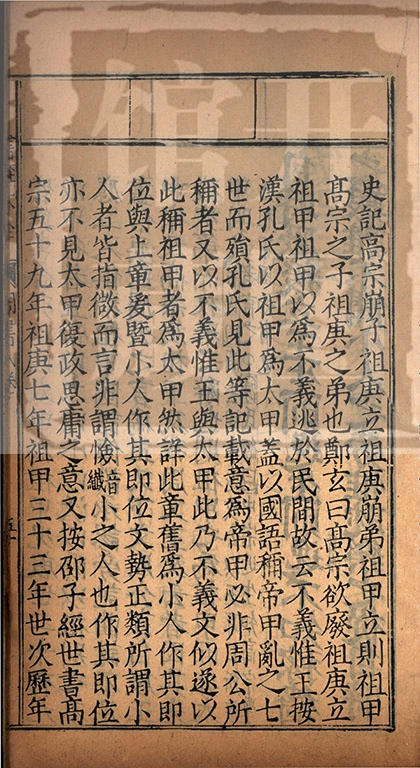 史記高宗崩子祖庚立祖庚崩弟祖甲立則祖甲
髙宗之子祖庚之弟也鄭玄曰髙宗欲廢祖庚立
祖甲祖甲以爲不義逃於民間故云不義惟王按
漢孔氏以祖甲爲太甲蓋以國語稱帝甲亂之七
世而殞孔氏見此等記載意爲帝甲必非周公所
稱者又以不義惟王與太甲此乃不義文似遂以
此稱祖甲者爲太甲然詳此章舊爲小人作其即
位與上章爰暨小人作其即位文勢正類所謂小
人者皆指微而言非謂憸音纖小之人也作其即位
亦不見太甲復政思庸之意又按邵子經世書髙
宗五十九年祖庚七年祖甲三十三年世次歷年